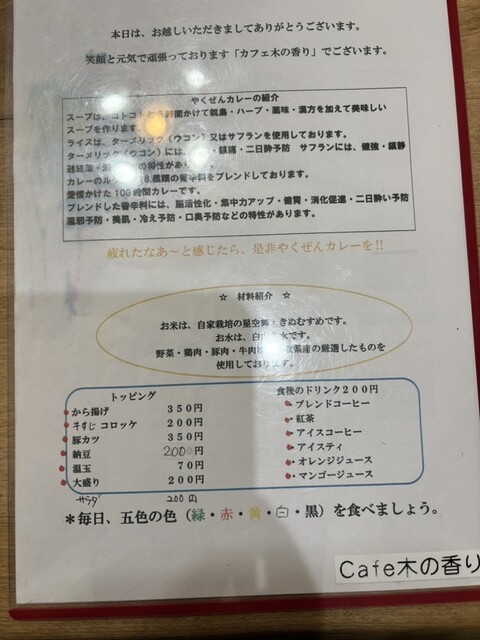 本日は、お越しいただきましてありがとうございます。
笑顔と元気で頑張っております「カフェ木の香り」でございます。
やくぜんカレーの紹介
スープは、コトコトと 時間かけて親鳥・ハーブ・薬味・漢方を加えて美味しい
スープを作ります。
ライスは、ターメリック(ウコン)又はサフランを使用しております。
ターメリック(ウコン)には、 ・鎮痛・二日酔予防 サフランには、健強・鎮静
の特性があり
カレーのル 18種類の香辛料をブレンドしております。
愛情かけた100時間カレーです。
ブレンドした香辛料には、脳活性化・集中力アップ・健胃・消化促進・二日酔い予防
風邪予防・美肌・冷え予防・口臭予防などの特性があります。
疲れたなあ～と感じたら、是非やくぜんカレーを!!
☆ 材料紹介 ☆
お米は、自家栽培の星空舞・きぬむすめです。
お水は、白 水です。
野菜・鶏肉・豚肉・牛肉は 県産の厳選したものを
使用しております。
トッピング
から揚げ 350円
牛すじコロッケ 200円
豚カツ 350円
納豆 200円
温玉 70円
大盛り 200円
サラダ 200円
食後のドリンク200円
・ブレンドコーヒー
・紅茶
・アイスコーヒー
・アイスティ
・オレンジジュース
・マンゴージュース
＊毎日、五色の色(緑・赤・黄・白・黒)を食べましょう。
Cafe木の香り